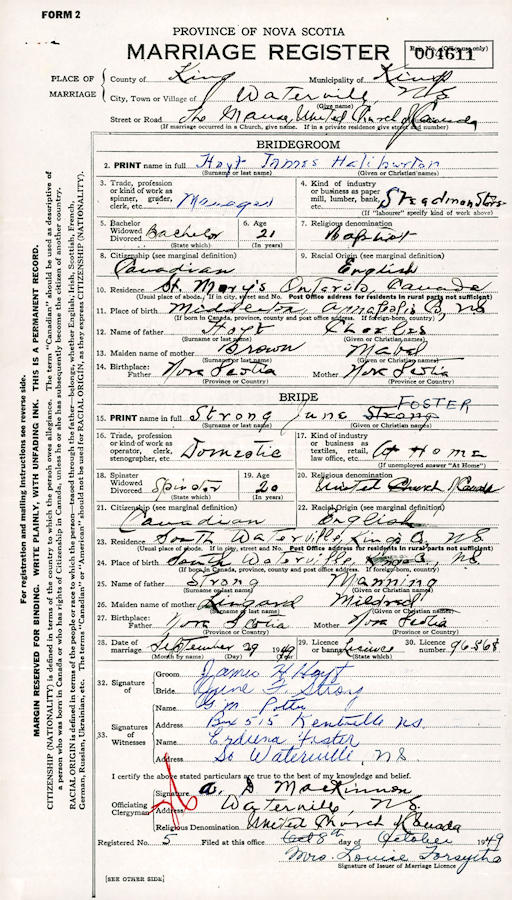 FORM 2
PROVINCE OF NOVA SCOTIA
MARRIAGE REGISTER
Reg. No. (Office use only)
004611
PLACE OF MARRIAGE
County of King Municipality of Kings
City, Town or Village of Waterville, N.S.
(Give name)
Street or Road The Manse, United Church of Canada
(If marriage occurred in a Church, give name. If in a private residence give street and number)
BRIDEGROOM
2. PRINT name in full Hoyt James Haliburton
(Surname or last name) (Given or Christian names)
3. Trade, profession or kind of work as spinner, grader, clerk, etc. Manager
4. Kind of industry or business as paper mill, lumber, bank, etc. Steadman Stores
(If "labourer" specify kind of work above)
5. Bachelor Widowed Divorced Bachelor
(State which)
6. Age 21
(In years)
7. Religious denomination
Baptist
8. Citizenship (see marginal definition)
Canadian
9. Racial Origin (see marginal definition)
English
10. Residence St. Mary's Ontario, Canada
(Usual place of abode. If in city, street and No. Post Office address for residents in rural parts not sufficient)
11. Place of birth Middleton, Annapolis Co, NS
(If born in Canada, province, county and post office address. If foreign-born, country)
12. Name of father Hoyt Charles
(Surname or last name) (Given or Christian names)
13. Maiden name of mother Brown Mabel
(Surname or last name) (Given or Christian names)
14. Birthplace: Father Nova Scotia Mother Nova Scotia
(Province or Country) (Province or Country)
BRIDE
FOSTER
15. PRINT name in full Strong June Strong
(Surname or last name) (Given or Christian names)
16. Trade, profession or kind of work as operator, clerk, stenographer, etc. Domestic
17. Kind of industry or business as textiles, retail, law office, etc. At Home
(If unemployed answer "At Home")
18. Spinster Widowed Divorced Spinster
(State which)
19. Age 20
(In years)
20. Religious denomination
United Church of Canada
21. Citizenship (see marginal definition)
Canadian
22. Racial Origin (see marginal definition)
English
23. Residence South Waterville, Kings Co. NS
(Usual place of abode. If in city, street and No. Post Office address for residents in rural parts not sufficient)
24. Place of birth South Waterville, Kings Co., NS
(If born in Canada, province, county and post office address. If foreign-born, country)
25. Name of father Strong Manning
(Surname or last name) (Given or Christian names)
26. Maiden name of mother Mildred
(Surname or last name) (Given or Christian names)
27. Birthplace: Father Nova Scotia Mother Nova Scotia
(Province or Country) (Province or Country)
28. Date of marriage September 29 1949
(Month by name) (Day)
29. Licence or banns Lisence
(State which)
30. Licence number 96868
32. Signature of
Groom James H Hoyt
Bride June F. Strong
33. Signatures of Witnesses
Name G. M. Potter
Address Box 515 Kentville N.S.
Name Foster
Address So Waterville, N.S.
I certify the above stated particulars are true to the best of my knowledge and belief.
Officiating Clergyman
Signature A. D MacKinnon
Address Waterville, N.S.
Religious Denomination United Church of Canada
Registered No. 5 Filed at this office Oct 8th day of October 1949
Mrs. Louise Forsythe
Signature of Issuer of Marriage Licence
[SEE OTHER SIDE]
For registration and mailing instructions see reverse side.
MARGIN RESERVED FOR BINDING. WRITE PLAINLY, WITH UNFADING INK. THIS IS A PERMANENT RECORD.
CITIZENSHIP (NATIONALITY) is defined in terms of the country to which the person owes allegiance. The term "Canadian" should be used as descriptive of
a person who was born in Canada or who has rights of Citizenship in Canada, unless he or she has subsequently become the citizen of another country.
RACIAL ORIGIN is defined in terms of the people or race to which the person—traced through the father—belongs, whether English, Irish, Scottish, French,
German, Russian, Ukrainian, etc. The terms "Canadian" or "American" should not be used for RACIAL ORIGIN, as they express CITIZENSHIP (NATIONALITY).